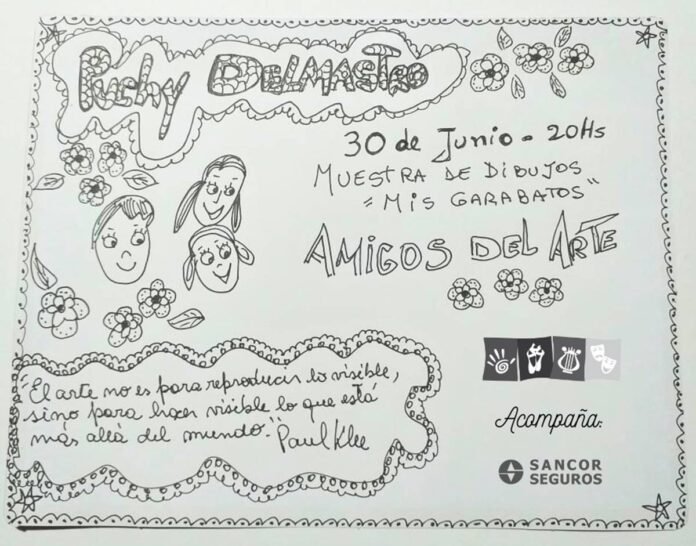 Puchy Delmastro
30 de Junio - 20Hs
MUESTRA DE DIBUJOS
"MIS GARABATOS"
AMIGOS DEL ARTE
"El arte no es para reproducir lo visible,
sino para hacer visible lo que está
más allá del mundo." Paul Klee
Acompaña:
SANCOR
SEGUROS